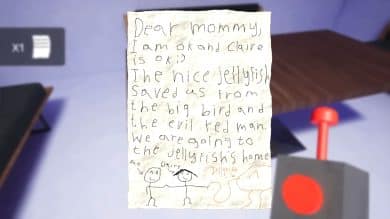 X1
Dear mommy,
I am ok and Claire
is ok:)
The nice jellyfish
saved us from
the big bird and
the evil red man.
We are going to
the jellyfish's home
Me
Claire